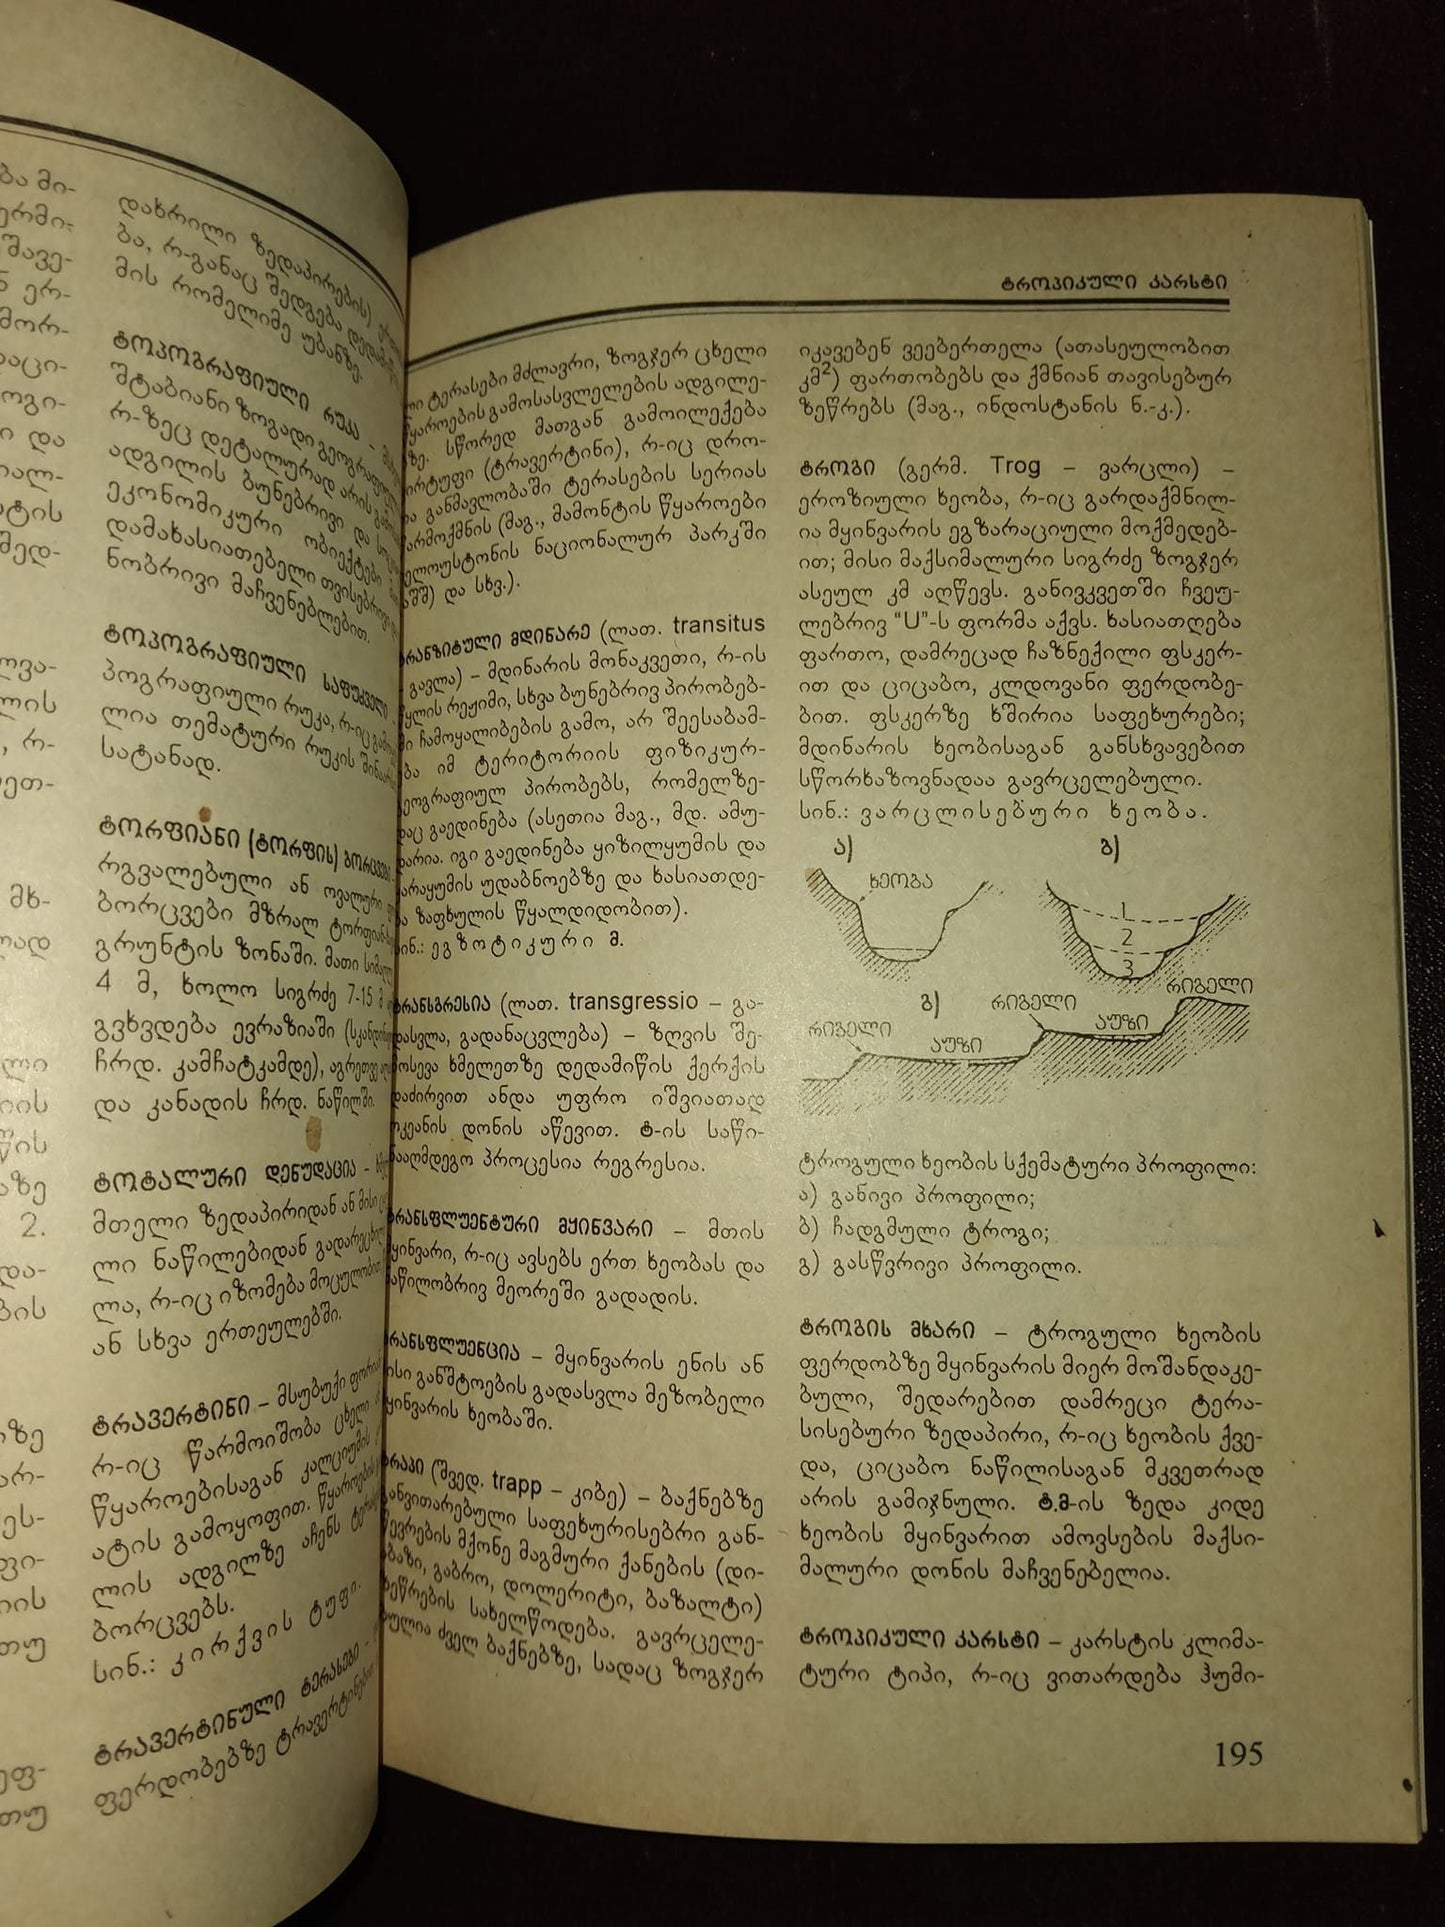 ბა მი-
ერმი-
შავე-
ერ-
მორ-
აცი-
ოგი-
ი და
იალ-
სტის
შედ-
ლის
, რ-
ეთ-
მხ-
2.
და-
ბის
თუ
დახრილი ზედაპირების)
ბა, რ-განაც შედგება
მის რომელიმე უბანზე.
ტოპოგრაფიული რუკა –
შტაბიანი ზოგადი
რ-ზეც დეტალურად არის
ადგილის ბუნებრივი და
ეკონომიკური ობიექტები
დამახასიათებელი თვისებრივი
ნობრივი მაჩვენებლებით.
ტოპოგრაფიული საფუძველი
პოგრაფიული რუკა, რ-იც
ლია თემატური რუკის
სატანად.
ტორფიანი (ტორფის) ბორცვები
რგვალებული ან ოვალური
ბორცვები მზრალ
გრუნტის ზონაში. მათი
4 მ, ხოლო სიგრძე 7-15 მ
გვხვდება ევრაზიაში
ჩრდ. კამჩატკამდე), აგრეთვე
და კანადის ჩრდ. ნაწილში.
ტოტალური დენუდაცია –
მთელი ზედაპირიდან ან მისი
ლი ნაწილებიდან
ლა, რ-იც იზომება მოცულობით
ან სხვა ერთეულებში.
ტრავერტინი – მსუბუქი
რ-იც წარმოიშობა ცხელი
წყაროებისაგან კალციუმის
ატის გამოყოფით. წყაროების
ლის ადგილზე აჩენს
ბორცვებს.
სინ.: კირქვის ტუფი.
ტრავერტინული ტერასები –
ფერდობებზე
ტროპიკული კარსტი
ტერასები მძლავრი, ზოგჯერ ცხელი
წყაროების გამოსასვლელების ადგილე-
ზე. სწორედ მათგან გამოილექება
(ტრავერტინი), რ-იც დრო-
განმავლობაში ტერასების სერიას
წარმოქმნის (მაგ., მამონტის წყაროები
ელოუსტონის ნაციონალურ პარკში
აშშ) და სხვ.).
ტრანზიტული მდინარე (ლათ. transitus
გავლა) – მდინარის მონაკვეთი, რ-ის
წყლის რეჟიმი, სხვა ბუნებრივ პირობებ-
ში ჩამოყალიბების გამო, არ შეესაბამ-
ება იმ ტერიტორიის ფიზიკურ-
გეოგრაფიულ პირობებს, რომელზე-
დაც გაედინება (ასეთია მაგ., მდ. ამუ-
დარია. იგი გაედინება ყიზილყუმის და
ყარაყუმის უდაბნოებზე და ხასიათდე-
ბა ზაფხულის წყალდიდობით).
სინ.: ეგზოტიკური მ.
ტრანსგრესია (ლათ. transgressio – გა-
დასვლა, გადანაცვლება) – ზღვის შე-
მოსევა ხმელეთზე დედამიწის ქერქის
დაძირვით ანდა უფრო იშვიათად
ოკეანის დონის აწევით. ტ-ის საწი-
ნააღმდეგო პროცესია რეგრესია.
ტრანსფლუენტური მყინვარი – მთის
მყინვარი, რ-იც ავსებს ერთ ხეობას და
ნაწილობრივ მეორეში გადადის.
ტრანსფლუენცია – მყინვარის ენის ან
მისი განშტოების გადასვლა მეზობელი
მყინვარის ხეობაში.
ტრაპი (შვედ. trapp – კიბე) – ბაქნებზე
განვითარებული საფეხურისებრი გან-
წევრების მქონე მაგმური ქანების (დი-
აბაზი, გაბრო, დოლერიტი, ბაზალტი)
ზეწრების სახელწოდება. გავრცელე-
ბულია ძველ ბაქნებზე, სადაც ზოგჯერ
იკავებენ ვეებერთელა (ათასეულობით
კმ²) ფართობებს და ქმნიან თავისებურ
ზეწრებს (მაგ., ინდოსტანის ნ.-კ.).
ტროგი (გერმ. Trog – ვარცლი) –
ეროზიული ხეობა, რ-იც გარდაქმნილ-
ია მყინვარის ეგზარაციული მოქმედებ-
ით; მისი მაქსიმალური სიგრძე ზოგჯერ
ასეულ კმ აღწევს. განივკვეთში ჩვეუ-
ლებრივ “U”-ს ფორმა აქვს. ხასიათღება
ფართო, დამრეცად ჩაზნექილი ფსკერ-
ით და ციცაბო, კლდოვანი ფერდობე-
ბით. ფსკერზე ხშირია საფეხურები;
მდინარის ხეობისაგან განსხვავებით
სწორხაზოვნადაა გავრცელებული.
სინ.: ვარცლისებური ხეობა.
ა) ბ)
ხეობა
1
2
3
რიგელი
გ) რიგელი
რიგელი აუზი
აუზი
ტროგული ხეობის სქემატური პროფილი:
ა) განივი პროფილი;
ბ) ჩადგმული ტროგი;
გ) გასწვრივი პროფილი.
ტროგის მხარი – ტროგული ხეობის
ფერდობზე მყინვარის მიერ მოშანდაკე-
ბული, შედარებით დამრეცი ტერა-
სისებური ზედაპირი, რ-იც ხეობის ქვე-
და, ციცაბო ნაწილისაგან მკვეთრად
არის გამიჯნული. ტ.მ-ის ზედა კიდე
ხეობის მყინვარით ამოვსების მაქსი-
მალური დონის მაჩვენებელია.
ტროპიკული კარსტი – კარსტის კლიმა-
ტური ტიპი, რ-იც ვითარდება ჰუმი-
195